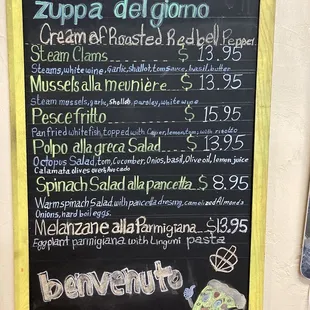 zuppa del giorno
Cream of Roasted Red bell Pepper
Steam Clams $ 13.95
Steams, white wine, Garlic, Shallot, tom sauce, basil, butter
Mussels alla meunière $ 13.95
Steam mussels, garlic, Shallot, parsley, white wine
Pesce fritto $ 15.95
Pan fried white fish, topped with Caper, lemon, tom, with risotto
Polpo alla greca Salad $ 13.95
Octopus Salad, tom, Cucumber, Onios, basil, Olive oil, lemon juice
Calamata olives over Avocado
Spinach Salad alla pancetta $ 8.95
Warm spinach Salad with pancetta dresing, and Almonds
Onions, hard boil eggs.
Melanzane alla Parmigiana $13.95
Eggplant parmigiana with Linguni pasta
benvenuto